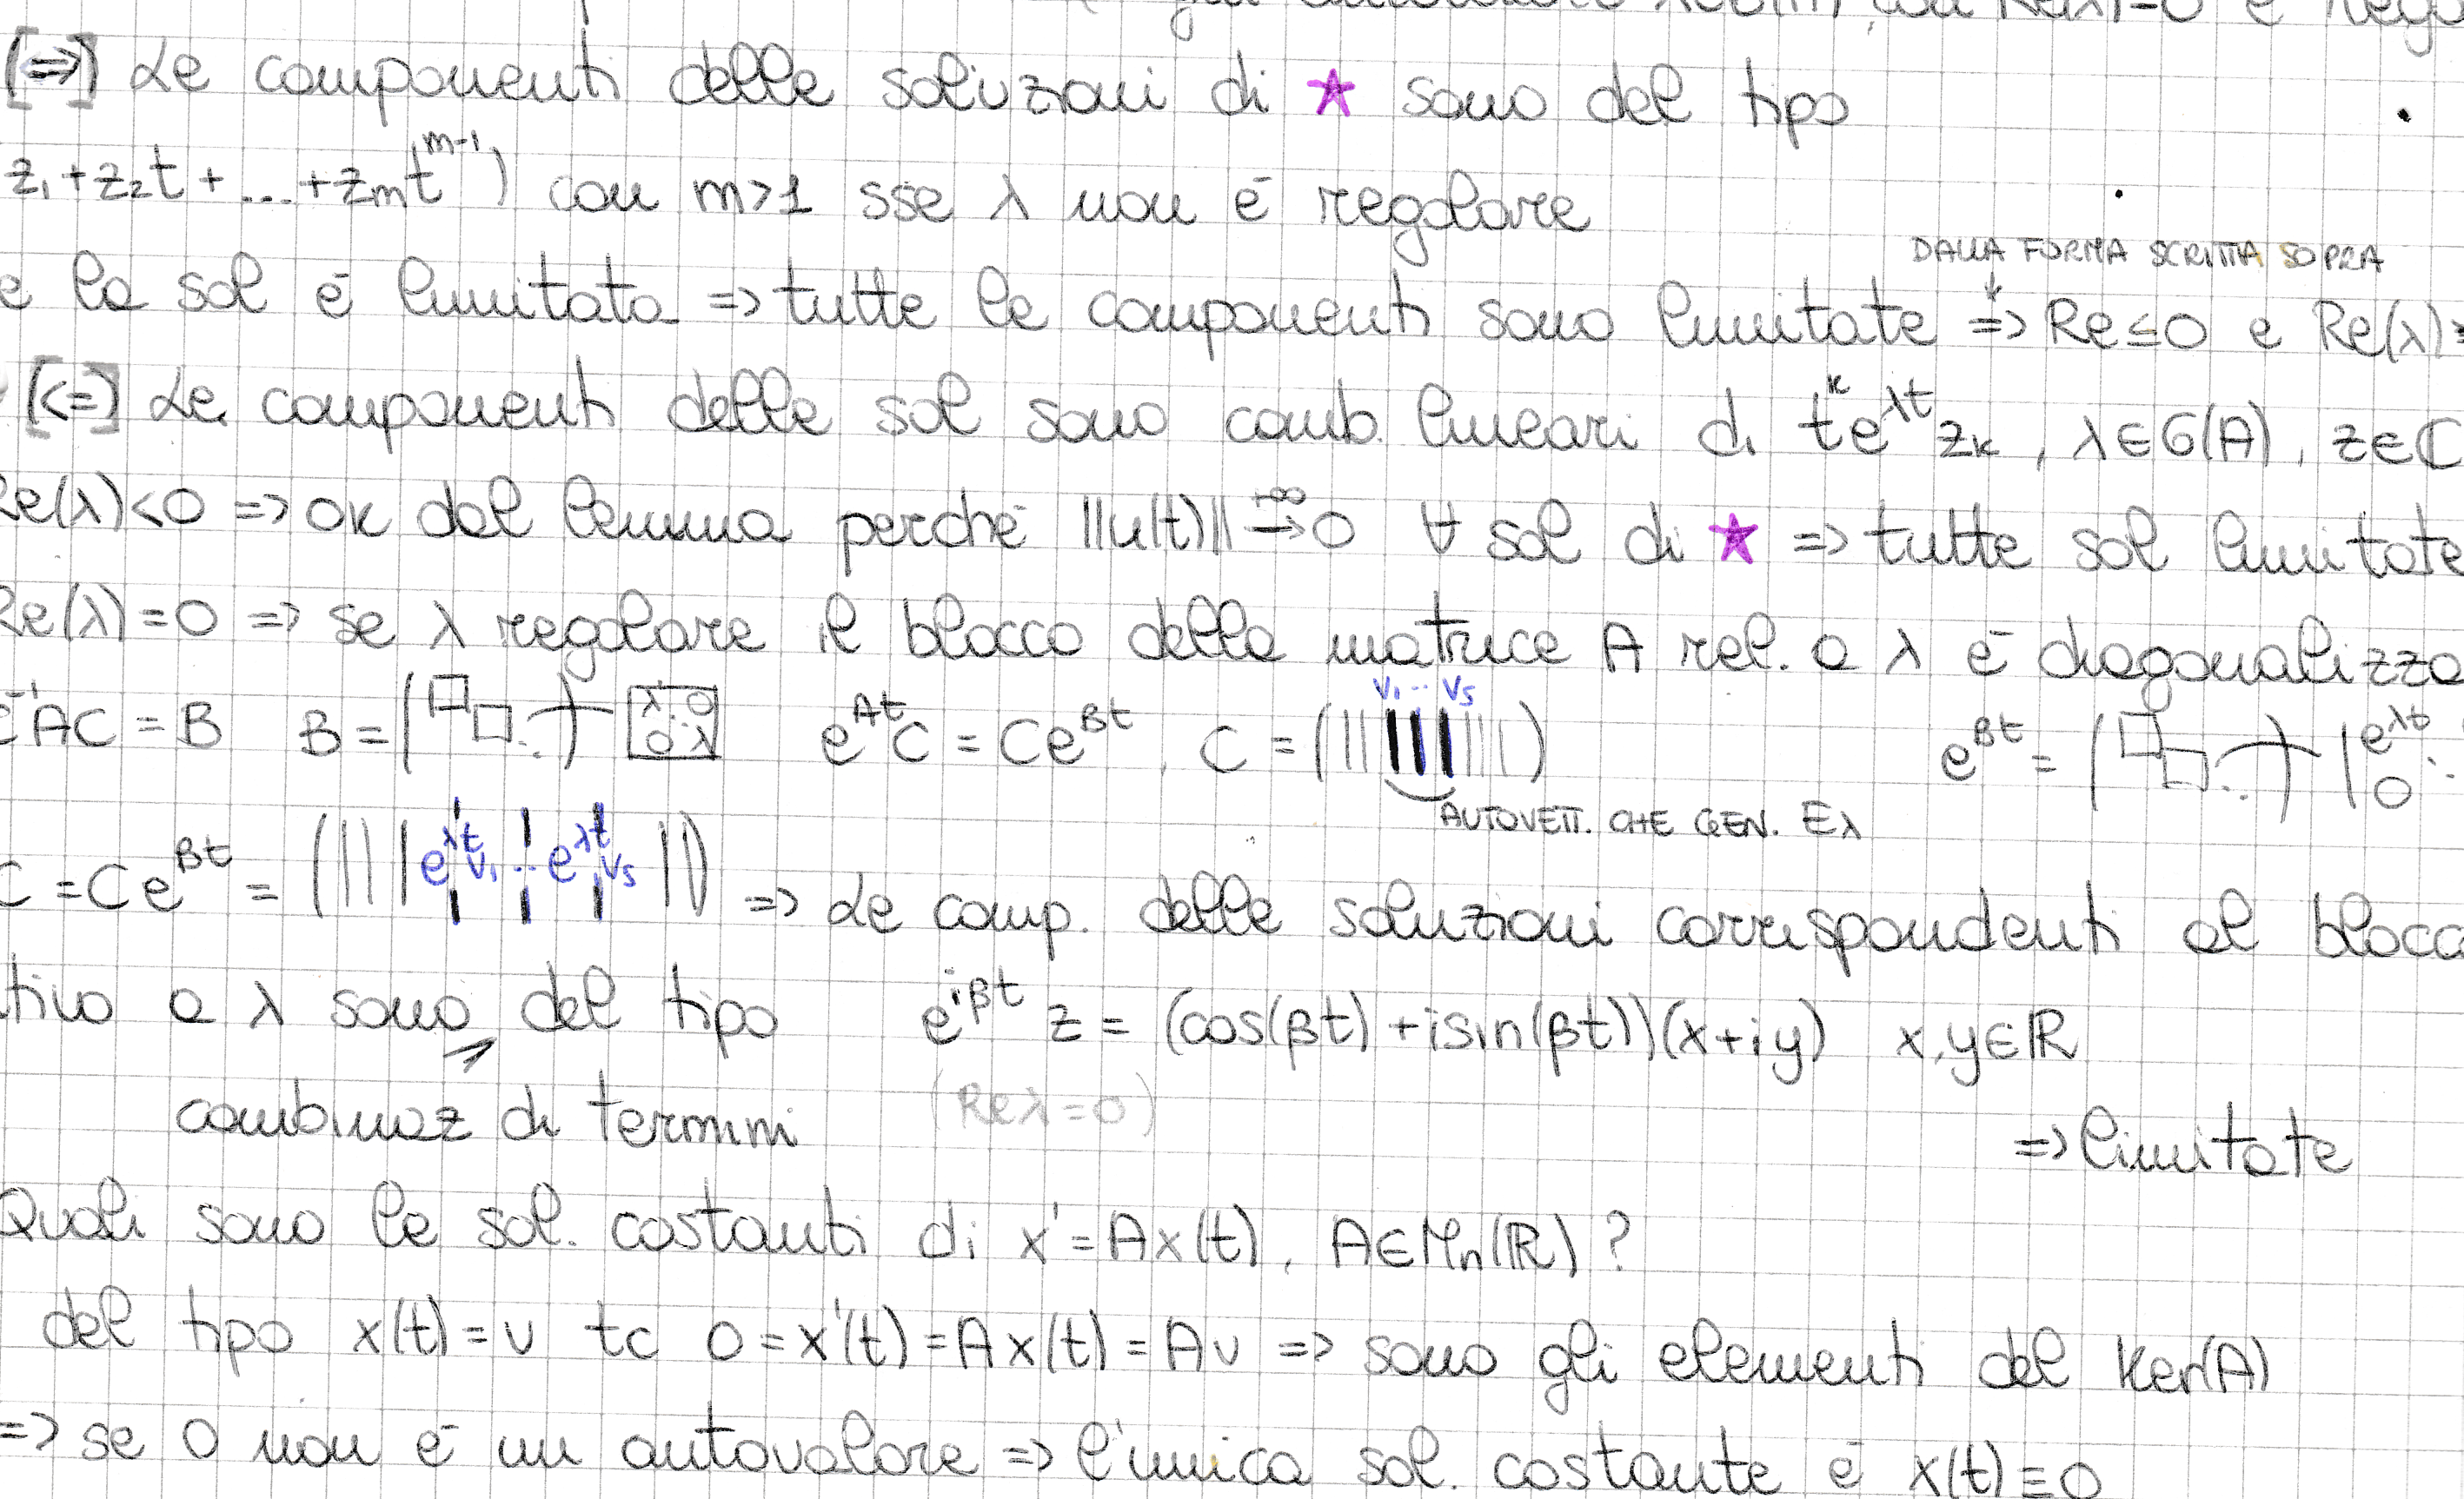 Re(λ)=0 e
[=>] Le componenti delle soluzioni di ★ sono del tipo
z₁+z₂t+...+zₘtᵐ⁻¹) con m>1 sse λ non è regolare
DALLA FORMA SCRITTA SOPRA
la sol è limitata => tutte le componenti sono limitate => Re≤0 e Re(λ)
[<=] Le componenti delle sol sono comb. lineari di tᵏe^λt zₖ, λ∈σ(A), z∈ℂ
Re(λ)<0 => ok dal lemma perché ||u(t)|| →0 ∀ sol di ★ => tutte sol limitate
Re(λ)=0 => se λ regolare il blocco della matrice A rel. a λ è
AC = B B = ( λ 0 0 λ e^At C = Ce^Bt, C = ( v₁ ·· vₛ ) e^Bt = ( ) e^λt 0
AUTOVETT. CHE GEN. Eλ
C = Ce^Bt = ( e^λt v₁ ··· e^λt vₛ ) => Le comp. delle soluzioni corrispondenti al
a λ sono del tipo e^iβt z = (cos(βt)+isin(βt))(x+iy) x,y∈ℝ
combinaz di termini (Reλ=0) => limitate
Quali sono le sol. costanti di x'=Ax(t), A∈Mₙ(ℝ)?
del tipo x(t)=v tc 0=x'(t)=Ax(t)=Av => sono gli elementi del Ker(A)
=> se 0 non è un autovalore => l'unica sol. costante è x(t)≡0